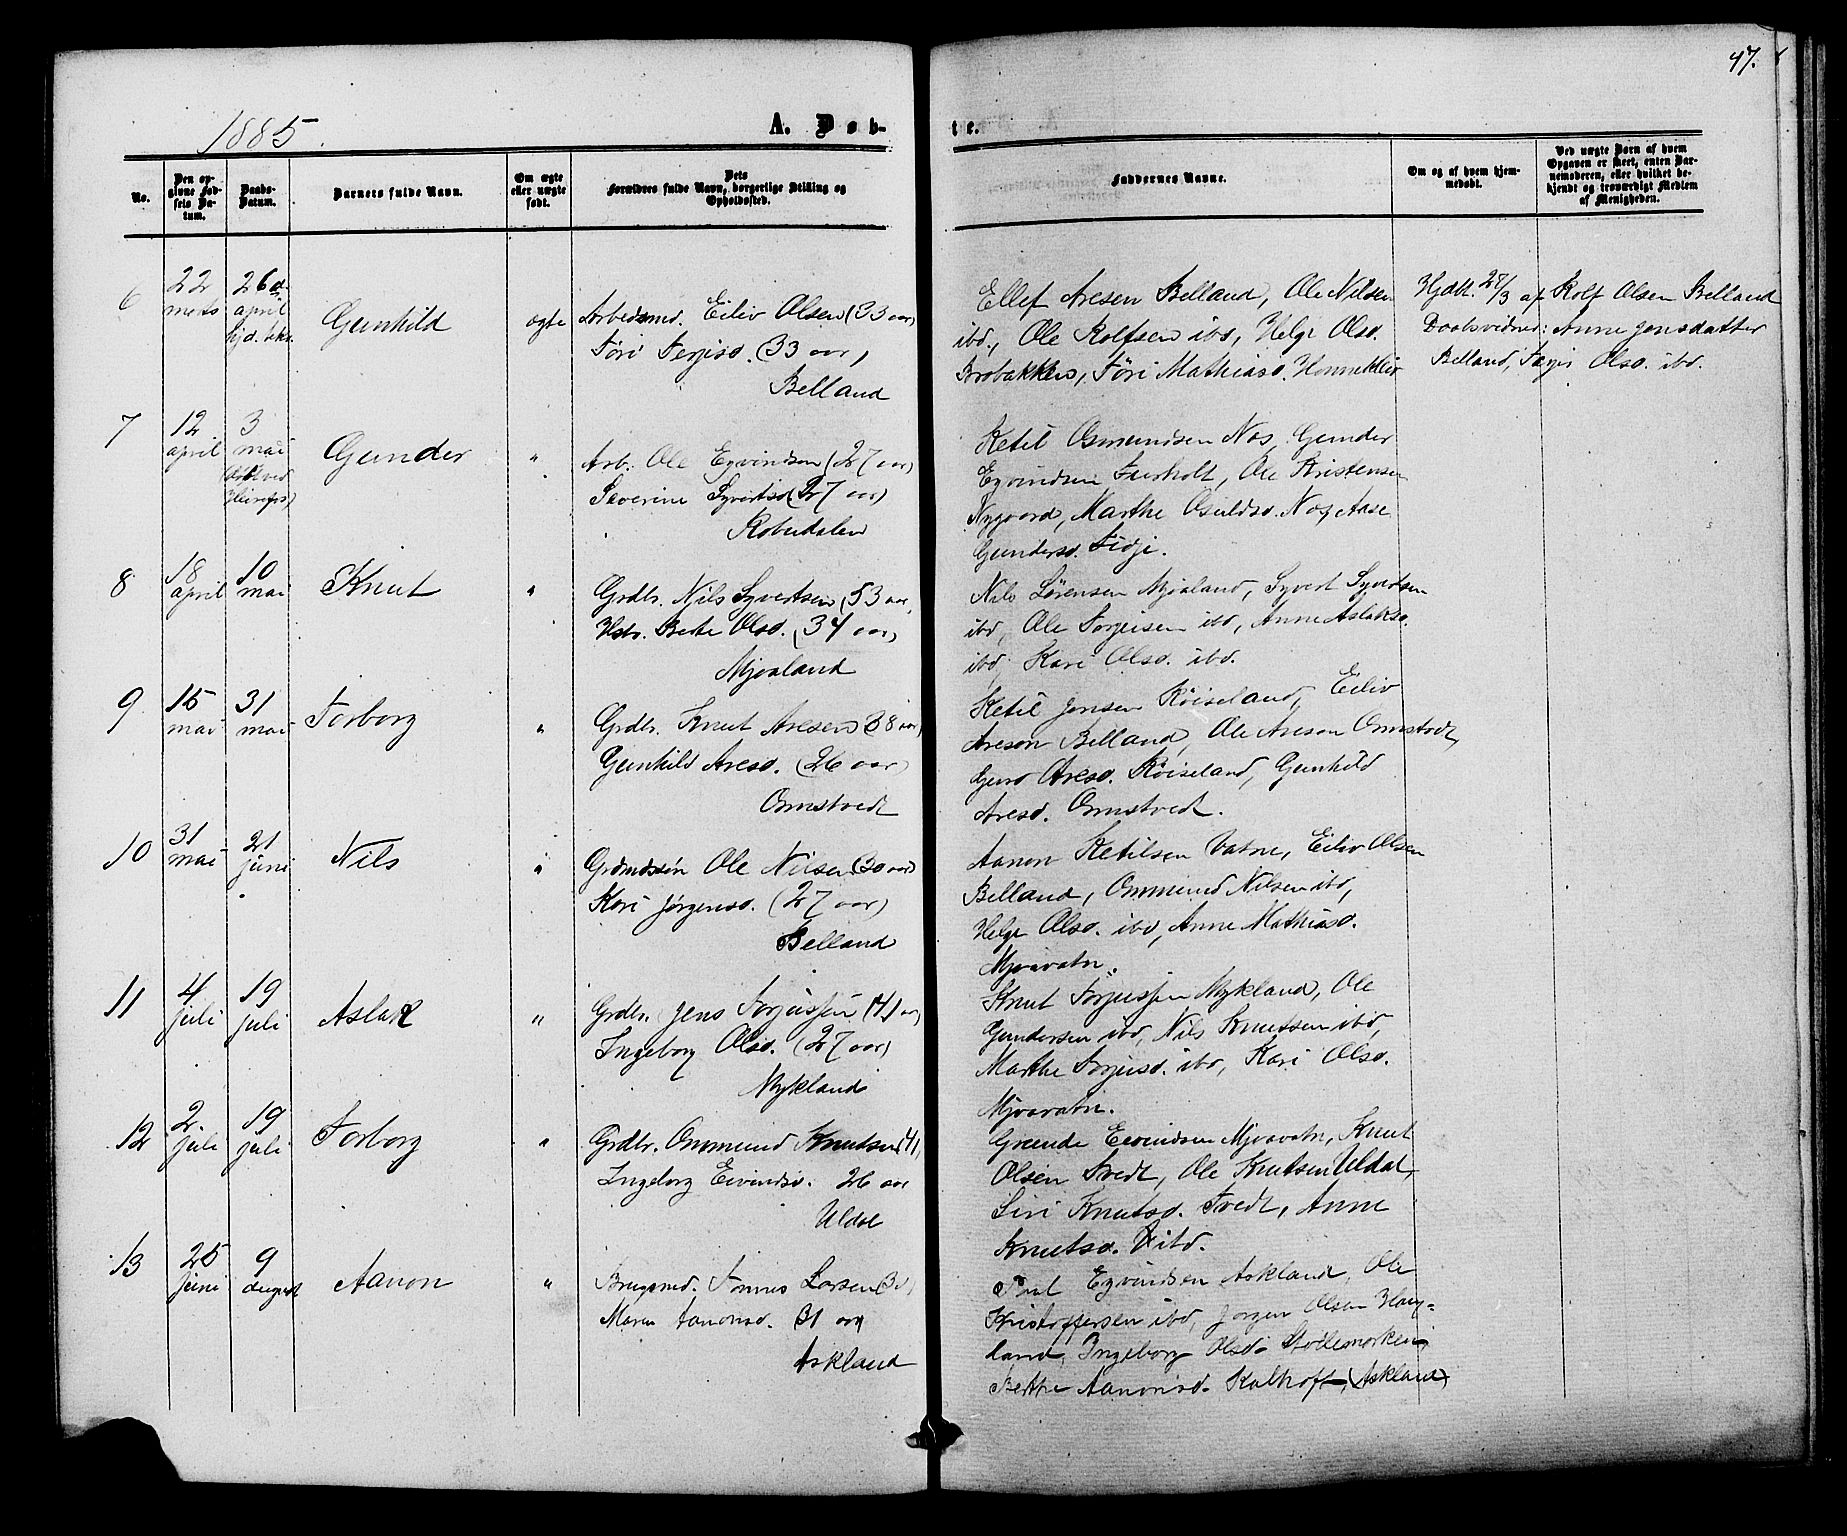 47.
1885.
A. Døb-
te.
No.
Den opgivne Fødsels Datum.
Daabs-Datum.
Barnets fulde Navn.
Om ægte eller uægte født.
Dets Forældres fulde Navn, borgerlige Stilling og Opholdssted.
Faddernes Navne.
Om og af hvem hjemmedøbt.
Ved uægte Børn af hvem Opgaven er skeet, enten Barnemoderen, eller hvilket bekjendt og troværdigt Medlem af Menigheden.
6
22 marts
26de april
hjd. bekr.
Gunhild
ægte
Arbedsmd. Eiliv Olsen (33 aar)
Tøri Terjisd. (33 aar,
Belland
Ellef Aresen Belland, Ole Nilsen
ibd., Ole Rolfsen ibd, Helge Olsd.
Brobakken, Tøri Mathiasd. Honnekleiv
Hjdbt. 27/3 af Rolf Olsen Belland
Daabsvidner: Anne Jensdatter
Belland, Olsd. ibd.
7
12 april
3 mai
Gunder
"
Arb. Ole Eyvindsen (27 aar)
Severine Syvertsd (27 aar)
Robudalen
Ketil Osmundsen Nos, Gunder
Eyvindsen, Ole Kristensen
Nygaard, Marthe Osuldsd. Nos, Aase
Gundersd. Tidje.
8
18 april
10 mai
Knut
"
Grdbr. Nils Syvertsen (53 aar,
Hstr. Berte Olsd. (34 aar)
Mjaaland
Nils Sørensen Mjaaland, Syvert Syvertsen
ibd, Ole Torjeisen ibd, Anne Aslaksd.
ibd, Kari Olsd. ibd.
9
15 mai
31 mai
Torborg
"
Grdbr. Knut Aresen 38 aar)
Gunhild Aresd. (26 aar)
Ormstvedt
Ketil Jensen Røiseland, Eiliv
Areson Belland, Ole Areson Ormstvedt,
Guro Aresd. Røiseland, Gunhild
Aresd. Ormstvedt.
10
31 mai
21 juni
Nils
"
Grdmdssøn Ole Nilsen (30 aar)
Kari Jørgensd. (27 aar)
Belland
Aanon Ketilsen Vatne, Eiliv Olsen
Belland, Ommund Nilsen ibd,
Helge Olsd. ibd, Anne Mathiasd.
Mjaavatn.
11
4 juli
19 juli
Aslak
"
Grdbr. Jens Torjussen (41 aar)
Ingeborg Olsd. (27 aar)
Mykland
Knut Torjussen Mykland, Ole
Gundersen ibd, Nils Knutssen ibd,
Marthe Torjusd. ibd, Kari Olsd.
Mjaavatn.
12
2. juli
19 juli
Torborg
"
Grdbr. Ommund Knutsen (41,
Ingeborg Eivindsd. 26 aar
Uldal
Eivindsen Mjaavatn, Knut
Olsen Tvedt, Ole Knutsen Uldal,
Siri Knutsd. Tvedt, Anne
Knutsd. ibd.
13
25 juni
9 august
Aanon
"
Brugsmd. Tønnes Larsen (30)
Maren Aanonsd. 31 aar
Askland
Eyvindsen Askland, Ole
Kristoffersen ibd, Jørgen Olsen Haug-
land, Ingeborg Olsd. Stødlemorken,
Berthe Aanonsd. Kalhoft, (Askland)